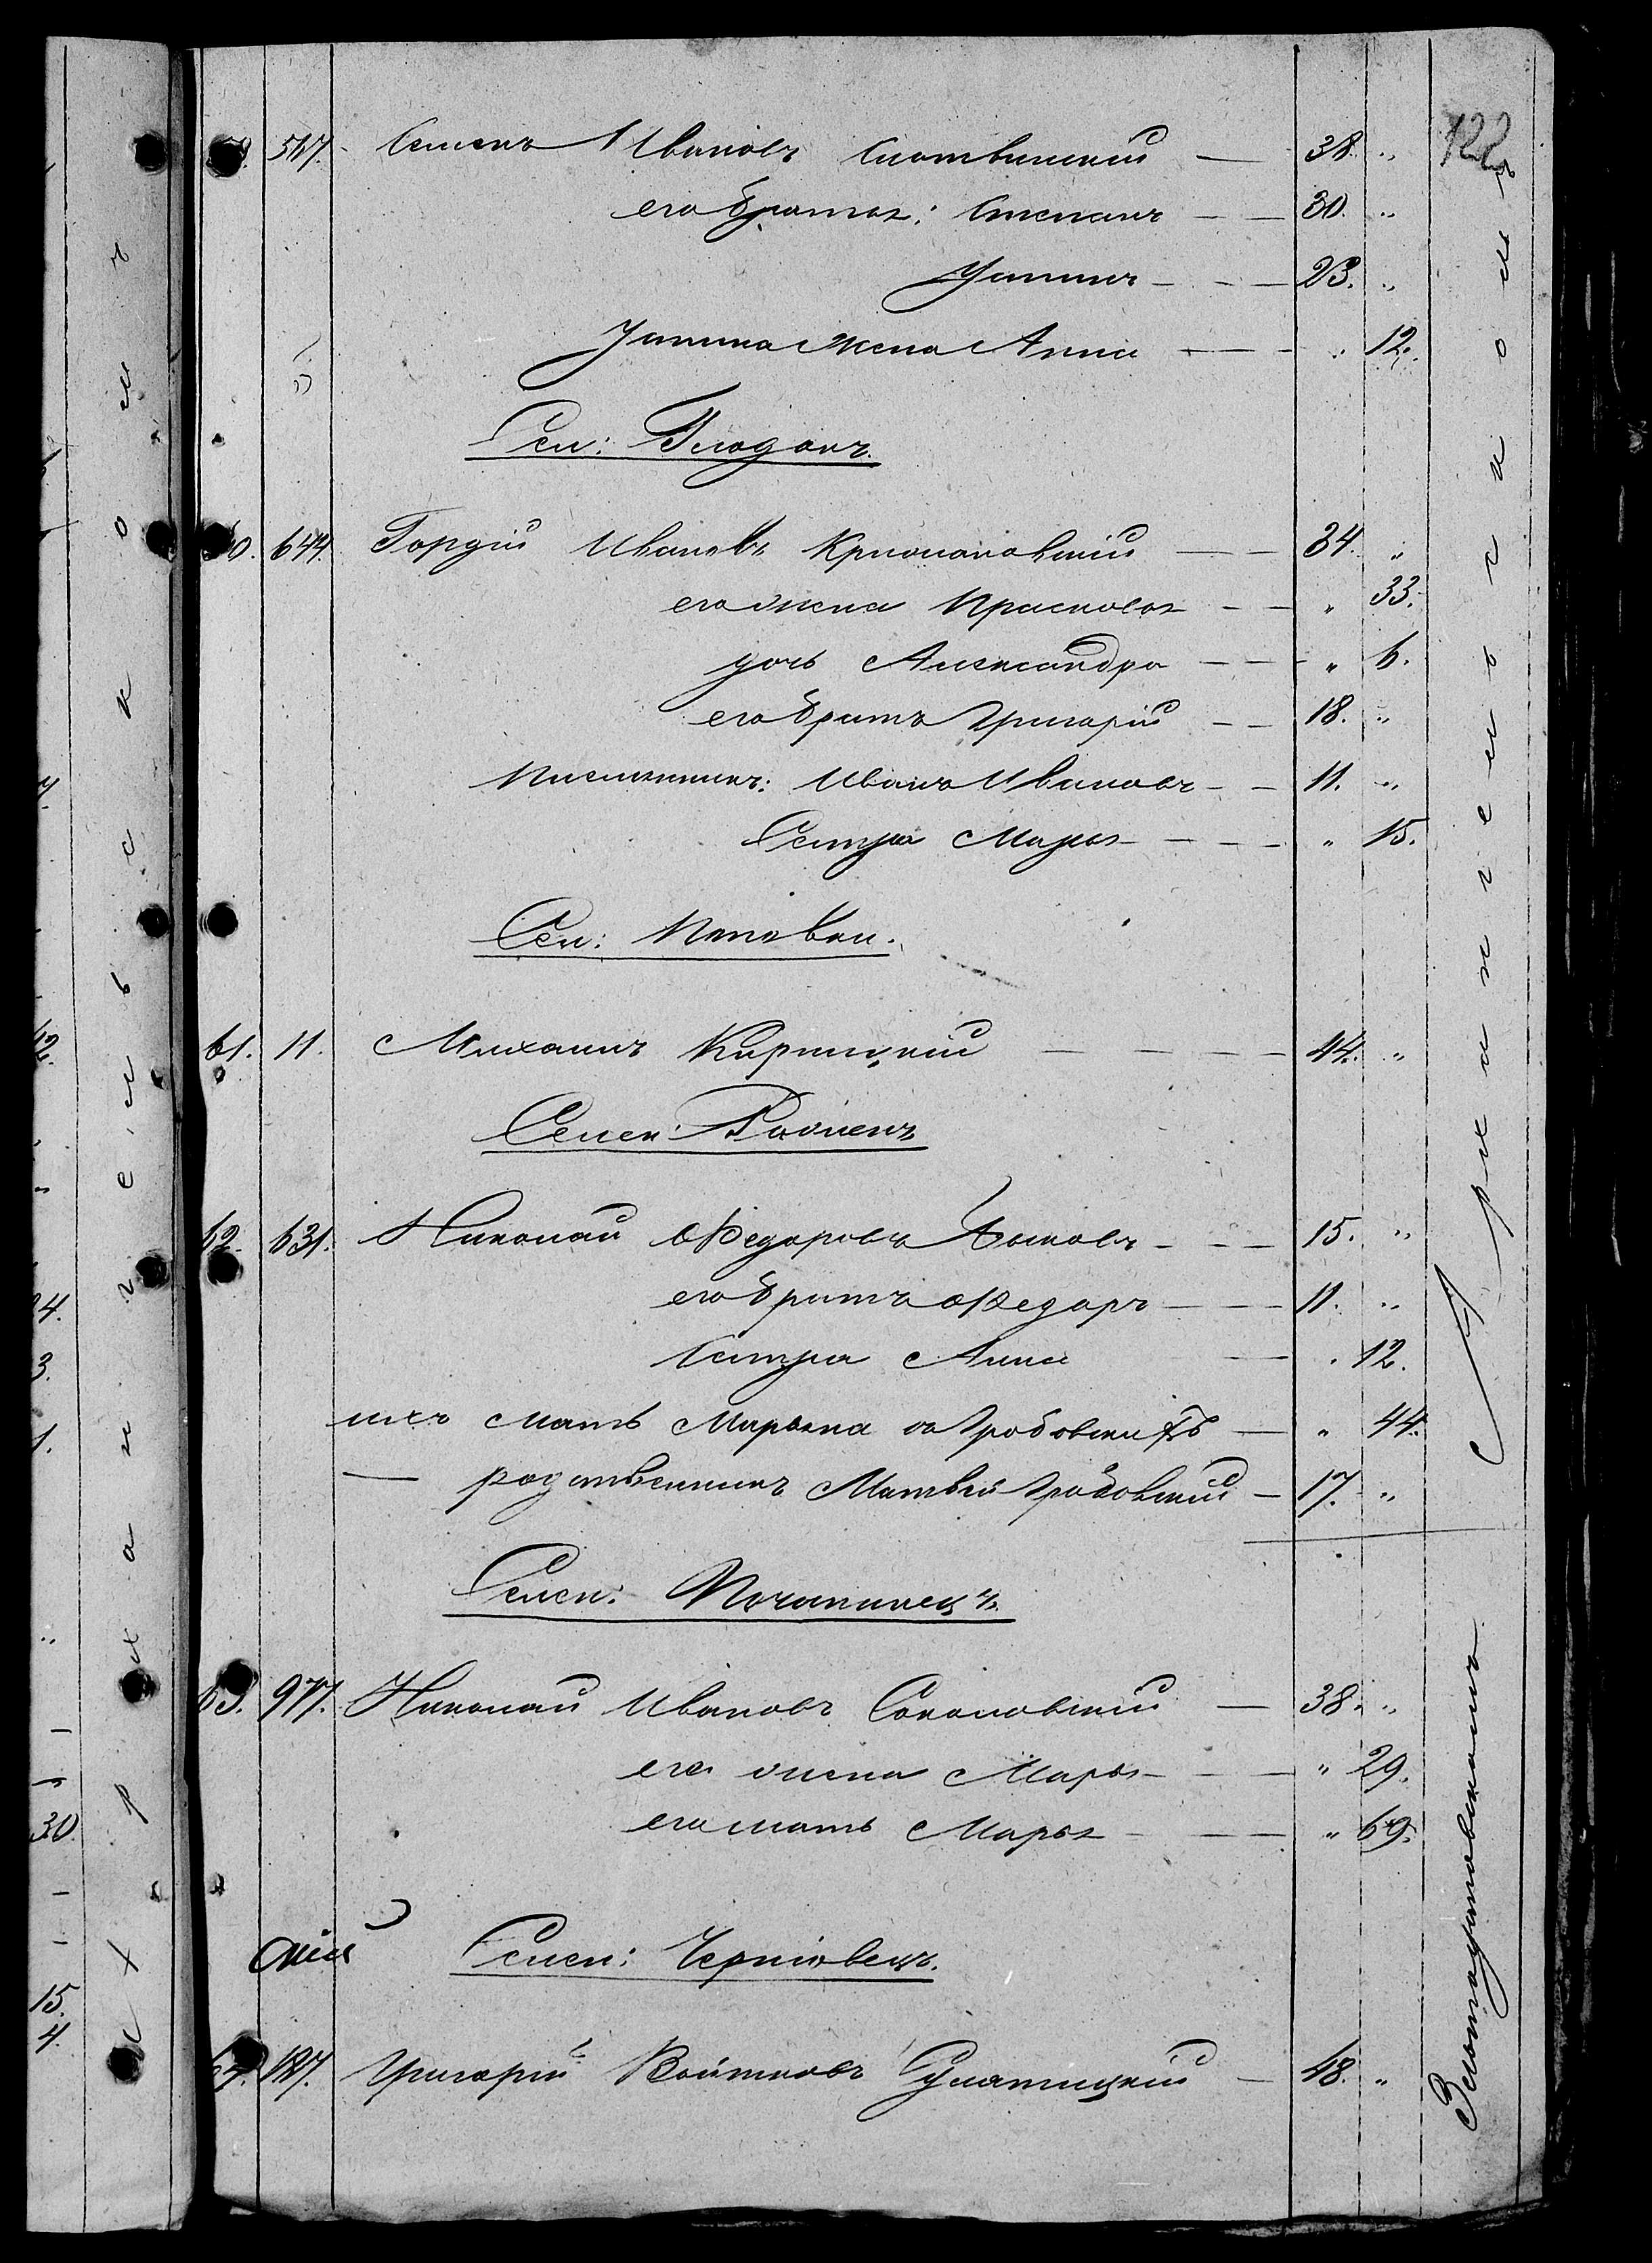 122
567. Семенъ Ивановъ Слотвинскій — 38. "
его братья: Степанъ — — 30. "
Устинъ — — 23. "
Устина жена Анна — — " 12.
Сел: Глодокъ.
60. 644. Гордій Ивановъ — — 34. "
его жена Прасковья — — " 33.
дочь Александра — — " 6.
его братъ Григорій — — 18. "
Племянникъ: Иванъ Ивановъ — — 11. "
Сестра Марья — — " 15.
Сел: Поповки.
61. 11. Михаилъ Кирницкій — — 44. "
Селен:
62. 631. Николай Федоровъ Быковъ — — 15. "
его братъ Федоръ — — 11. "
Сестра Анна — " 12.
ихъ мать Марьяна — " 44.
— родственникъ Матвей Грабовскій — 17. "
Селен: Почапинецъ.
63. 977. Николай Ивановъ Соколовскій — 38. "
его жена Марья — — " 29.
его мать Марья — — " 69.
Селен: Черніовецъ.
64. 187. Григорій Войтковъ Сулятицкій — 48. "
Архангельскомъ
Златоустовскомъ